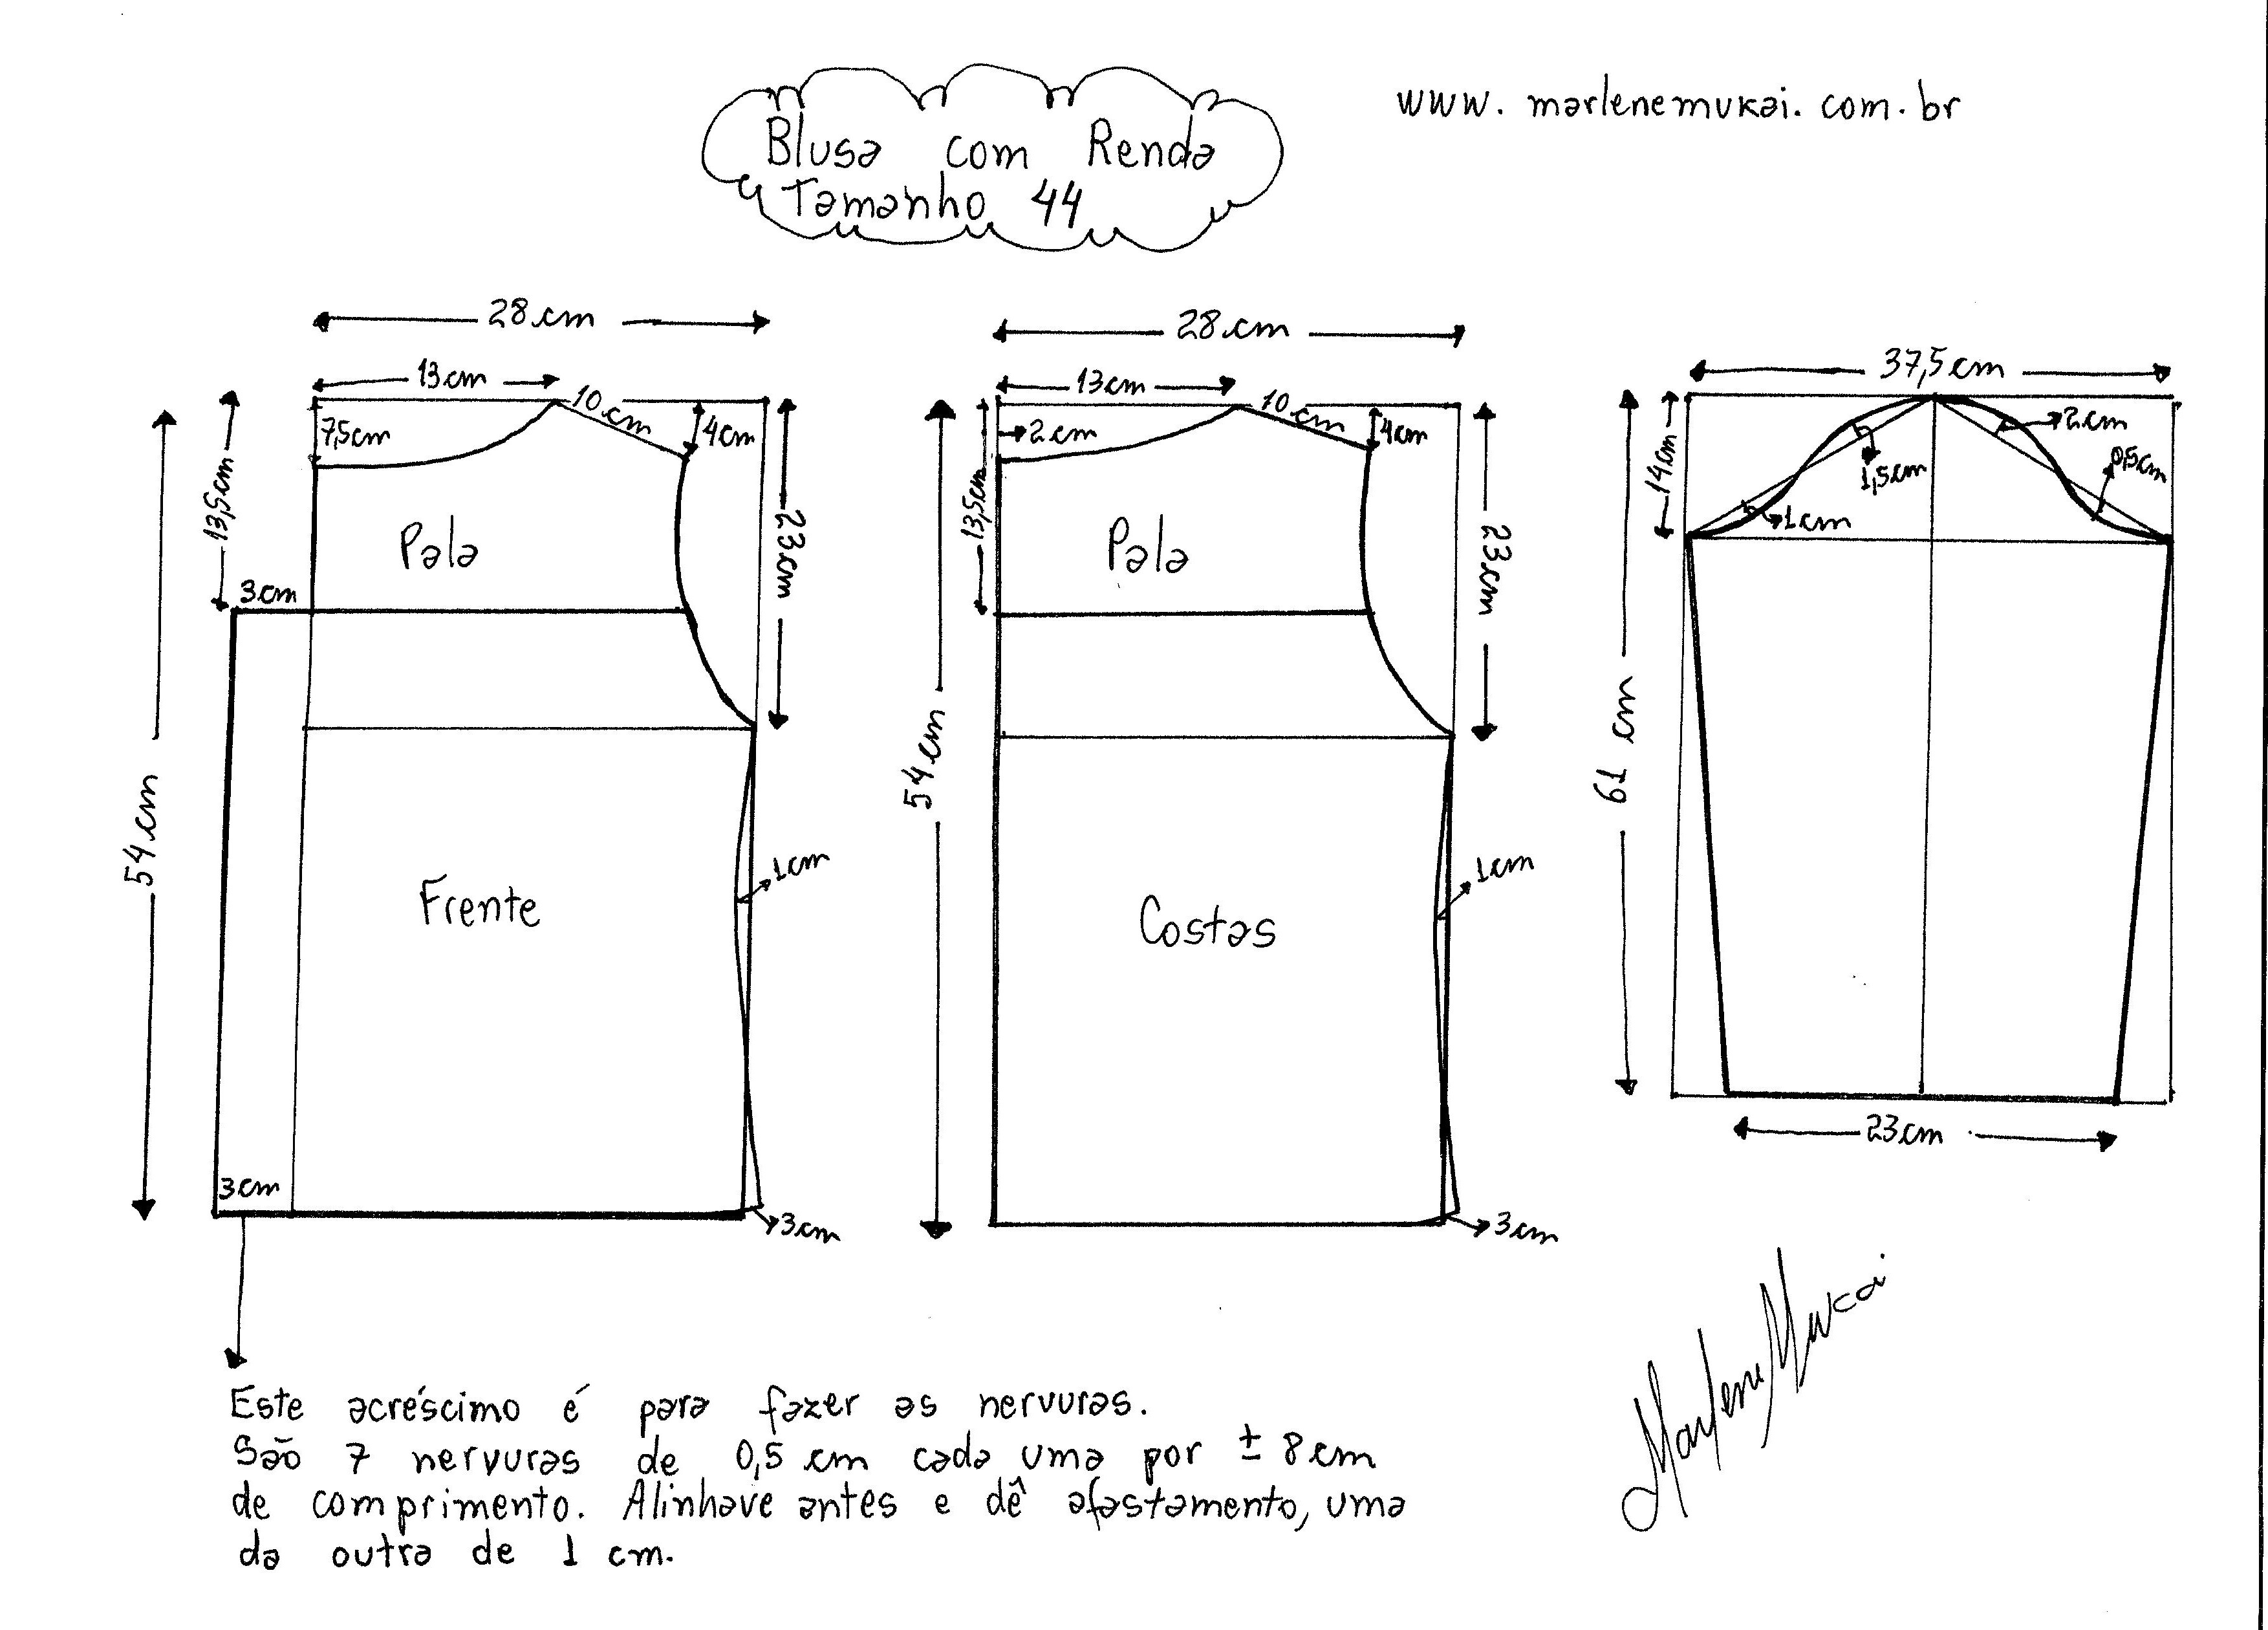 www.marlenemukai.com.br
Blusa com Renda
Tamanho 44
28 cm
13 cm
10 cm
7,5 cm
4 cm
13,5 cm
23 cm
Pala
3 cm
54 cm
1 cm
Frente
3 cm
3 cm
28 cm
13 cm
10 cm
2 cm
4 cm
13,5 cm
23 cm
Pala
54 cm
1 cm
Costas
3 cm
37,5 cm
2 cm
14 cm
1,5 cm
0,5 cm
1 cm
61 cm
23 cm
Este acréscimo é para fazer as nervuras.
São 7 nervuras de 0,5 cm cada uma por ± 8 cm
de comprimento. Alinhave antes e dê afastamento, uma
da outra de 1 cm.
Marlene Mukai